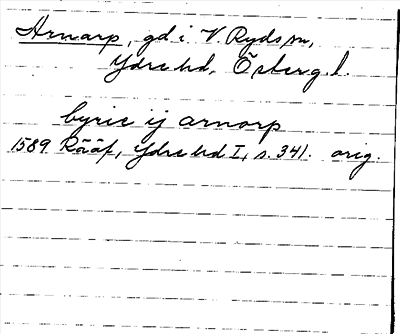 Arnarp, gd i V. Ryds sn,
Ydre hd, Östergl.
byrie ij arnorp
1589 Rääf, Ydre hd I, s. 341. orig.